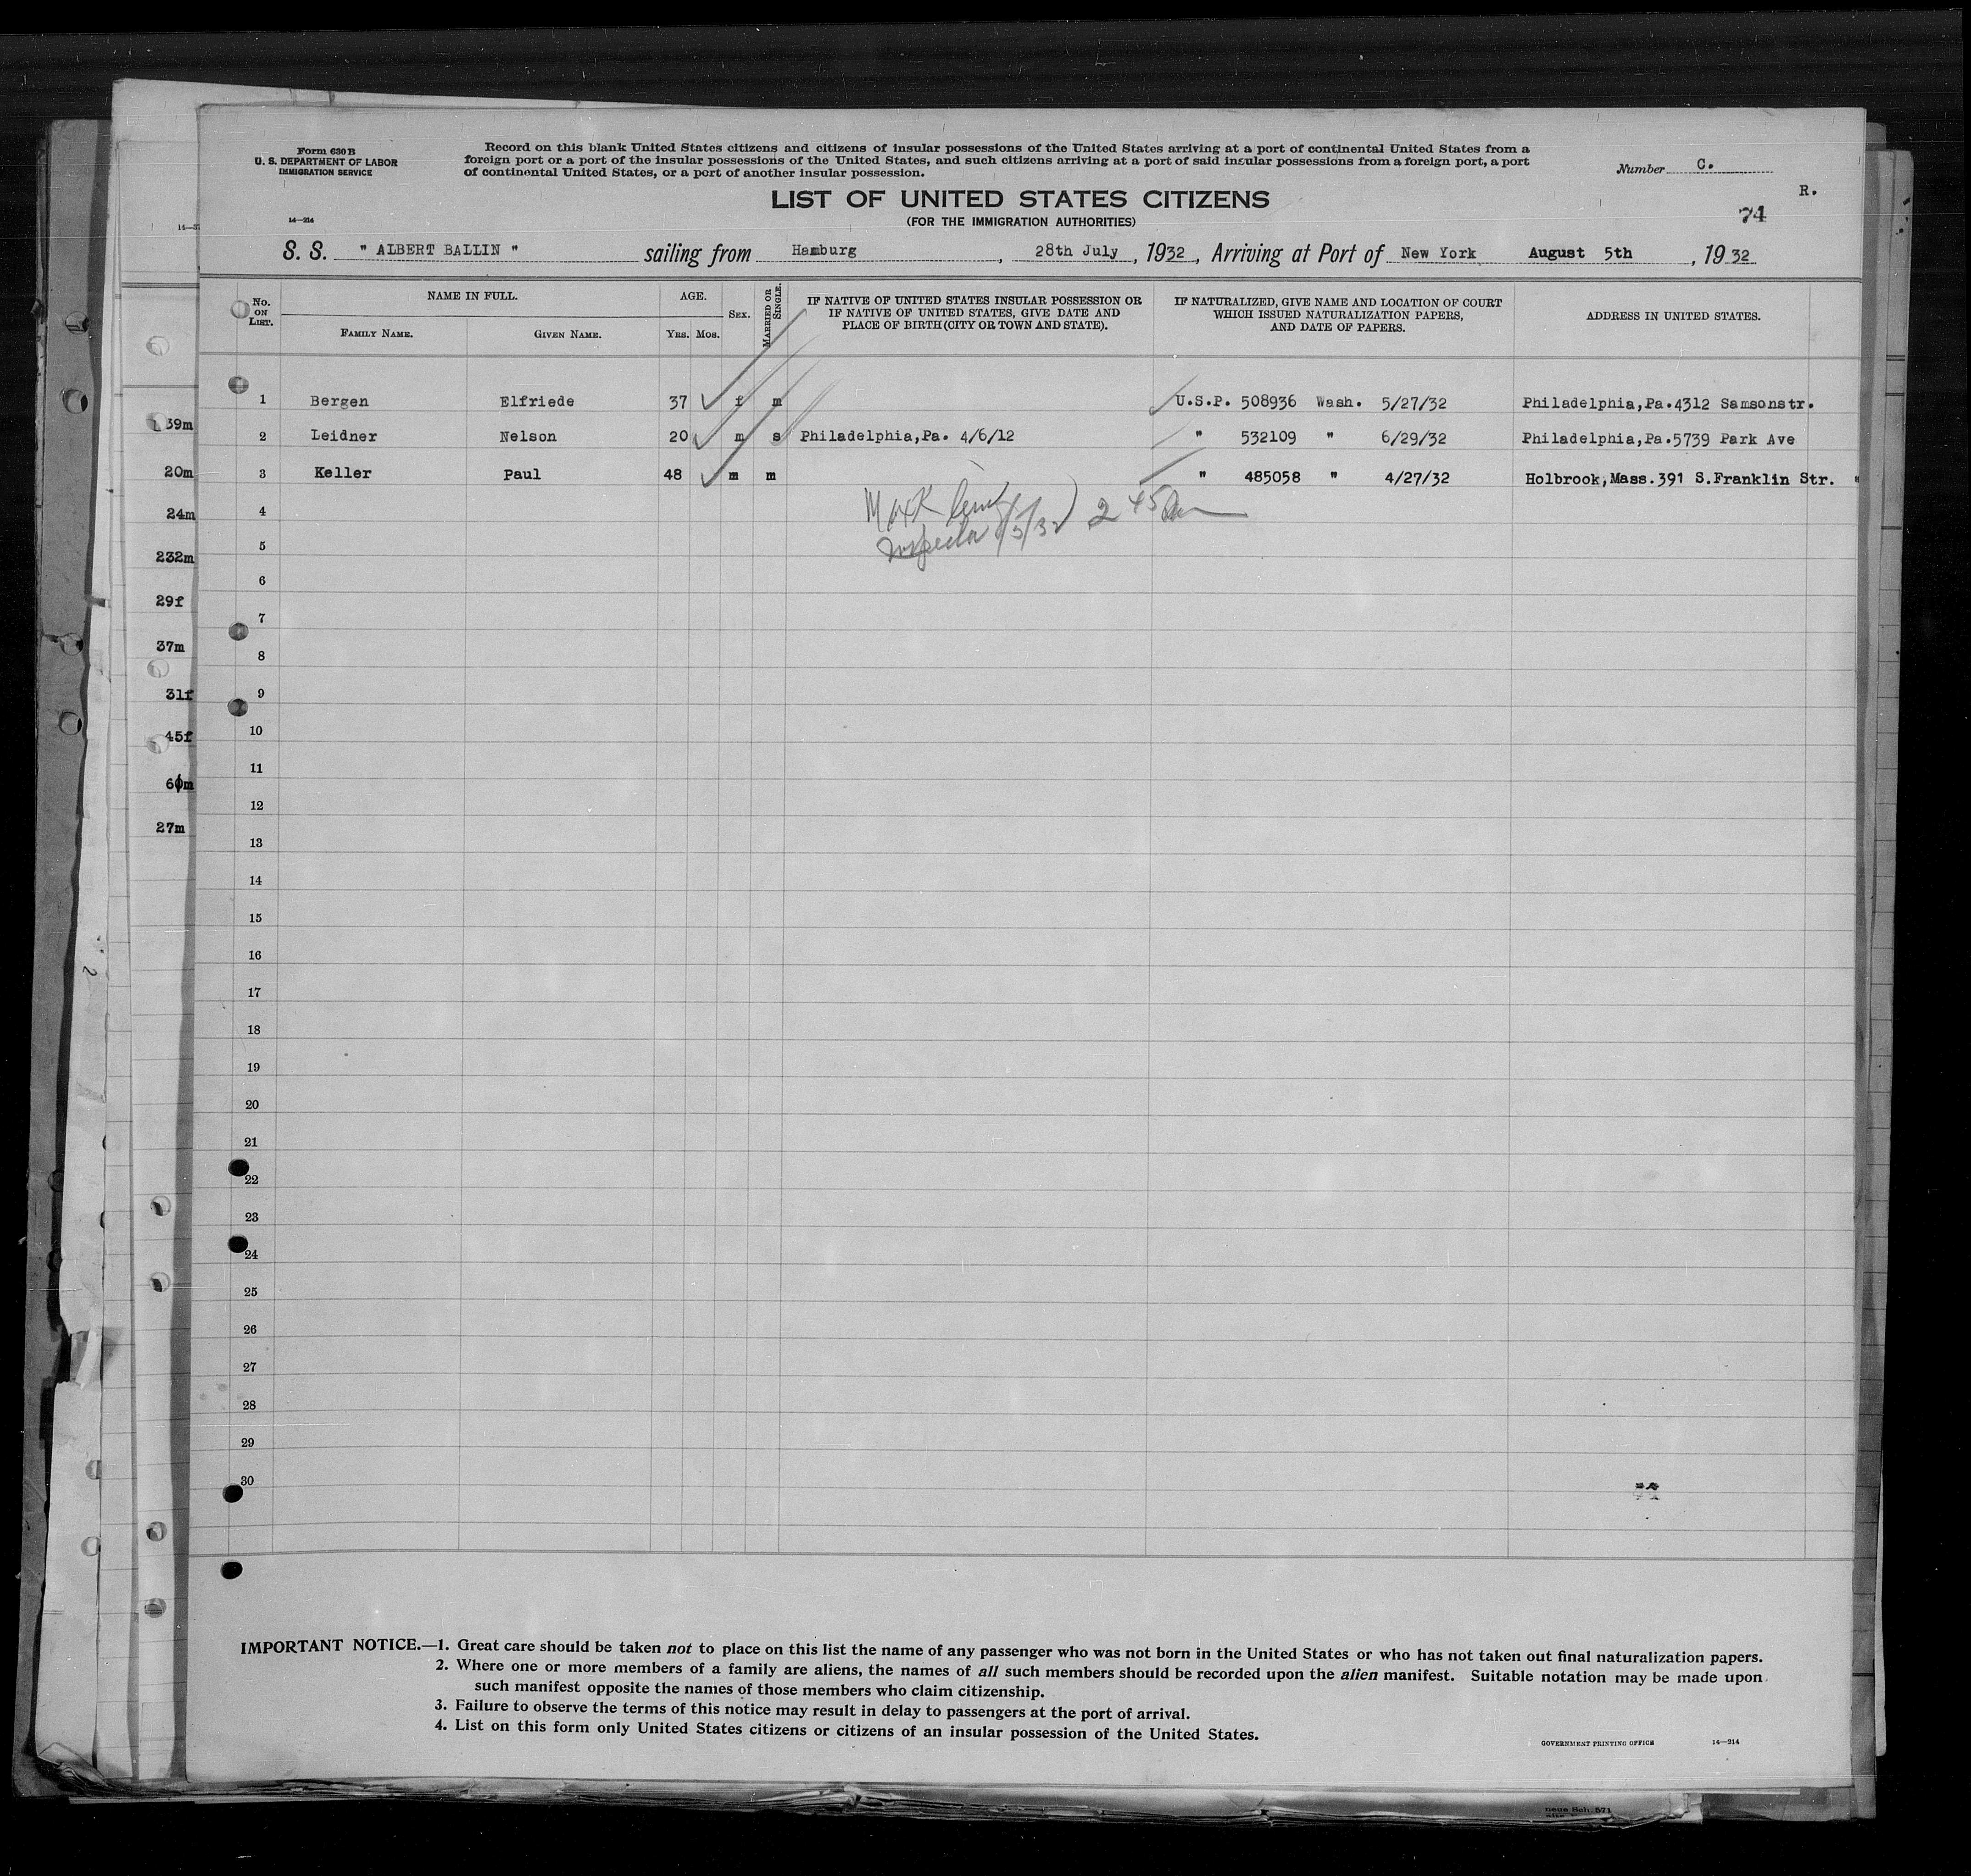 Form 630 B
U. S. DEPARTMENT OF LABOR
IMMIGRATION SERVICE
Record on this blank United States citizens and citizens of insular possessions of the United States arriving at a port of continental United States from a
foreign port or a port of the insular possessions of the United States, and such citizens arriving at a port of said insular possessions from a foreign port, a port
of continental United States, or a port of another insular possession.
Number C.
R.
LIST OF UNITED STATES CITIZENS
(FOR THE IMMIGRATION AUTHORITIES)
74
14—214
S. S. " ALBERT BALLIN " sailing from Hamburg, 28th July, 1932, Arriving at Port of New York August 5th, 1932
No. ON LIST. NAME IN FULL. FAMILY NAME. GIVEN NAME. AGE. YRS. MOS. SEX. MARRIED OR SINGLE. IF NATIVE OF UNITED STATES INSULAR POSSESSION OR IF NATIVE OF UNITED STATES, GIVE DATE AND PLACE OF BIRTH (CITY OR TOWN AND STATE). IF NATURALIZED, GIVE NAME AND LOCATION OF COURT WHICH ISSUED NATURALIZATION PAPERS, AND DATE OF PAPERS. ADDRESS IN UNITED STATES.
1 Bergen Elfriede 37 f m U.S.P. 508936 Wash. 5/27/32 Philadelphia,Pa.4312 Samsonstr.
2 Leidner Nelson 20 m s Philadelphia,Pa. 4/6/12 " 532109 " 6/29/32 Philadelphia,Pa.5739 Park Ave
3 Keller Paul 48 m m " 485058 " 4/27/32 Holbrook,Mass.391 S.Franklin Str. "
4
Inspector 2 45
5
6
7
8
9
10
11
12
13
14
15
16
17
18
19
20
21
22
23
24
25
26
27
28
29
30
39m
20m
24m
232m
29f
37m
31f
45f
60m
27m
IMPORTANT NOTICE.—1. Great care should be taken not to place on this list the name of any passenger who was not born in the United States or who has not taken out final naturalization papers.
2. Where one or more members of a family are aliens, the names of all such members should be recorded upon the alien manifest. Suitable notation may be made upon
such manifest opposite the names of those members who claim citizenship.
3. Failure to observe the terms of this notice may result in delay to passengers at the port of arrival.
4. List on this form only United States citizens or citizens of an insular possession of the United States.
GOVERNMENT PRINTING OFFICE 14—214
neue Sch. 571